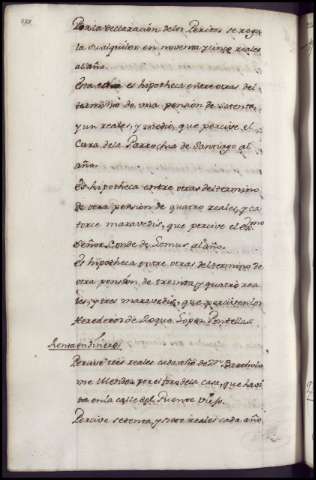 Por la declaración de los Peritos se regu
la su alquiler en noventa y cinco reales
al año.
Esta es hipotheca entre otras del
termino de una pensión de setenta,
y un reales, y medio, que percive el
Cura de la Parrochia de Santiago al
año.
Es hipotheca entre otras del termino
de otra pensión de quatro reales, y ca
torce maravedis, que percive el
Señor Conde de Lemus al año.
Es hipotheca entre otras del termino de
otra pensión, de treinta, y quatro rea
les, y tres maravedis, que perciven los
Herederos de Roque Lopez
Renta en dinero
Percive tres reales cada año de Dn. Bartholo
me Mendez por el fora de la casa, que havi
ta en la calle del Puente viejo.
Percive setenta, y siete reales cada año